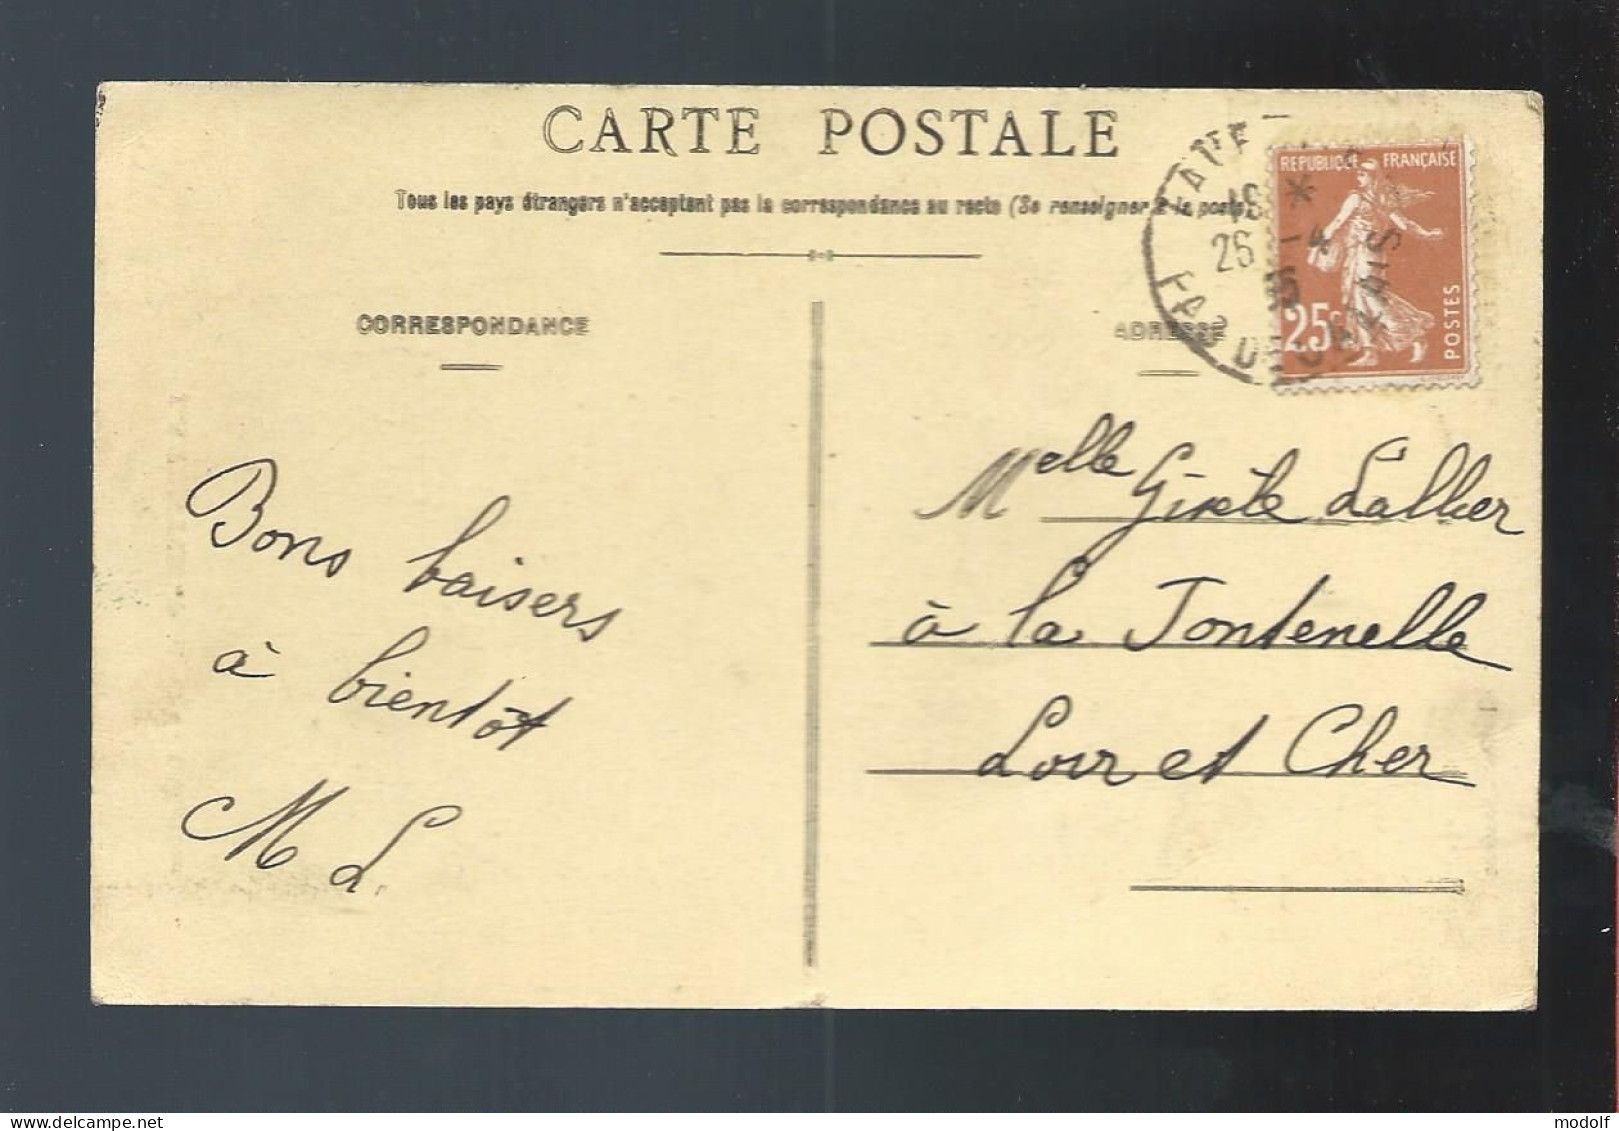 CARTE POSTALE
Tous les pays étrangers n'acceptent pas la correspondance au recto (Se renseigner à la poste)
CORRESPONDANCE
ADRESSE
REPUBLIQUE FRANÇAISE
25c
POSTES
26
DE CALAIS
Bons baisers
à bientôt
M L.
Melle Gisèle Lallier
à la Fontenelle
Loir et Cher
modolf